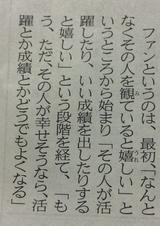 ファンというのは、最初「なんと
なくその人を観ていると嬉しい」と
いうところから始まり「その人が活
躍したり、いい成績を出したりする
と嬉しい」という段階を経て、「も
う、ただ、その人が幸せそうなら、活
躍とか成績とかどうでもよくなる」